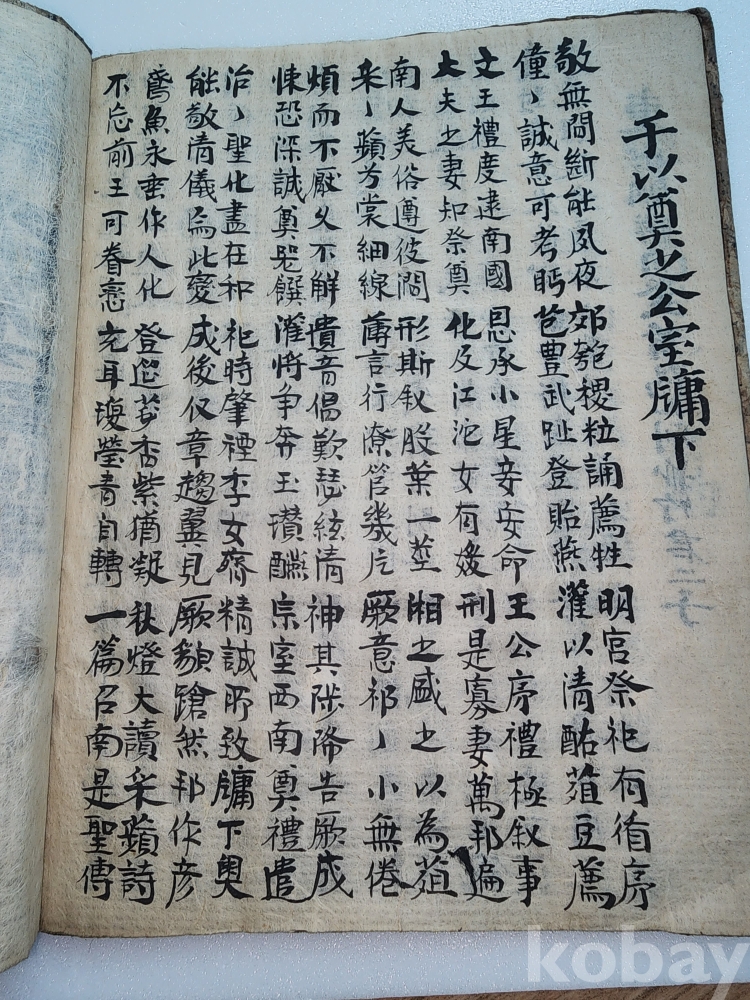 于以奠之公室牖下
敬無間斷能夙夜 郊匏稷粒誦薦牲 明宮祭祀有循序
僮〻誠意可考眄 芑豊武趾登貽燕 灌以清酤菹豆薦
文王禮度達南國 恩承小星妾安命 王公序禮極叙事
大夫之妻知祭奠 化及江沱女有媛 刑是寡妻萬邦遍
南人美俗遵彼 形斯叙股葉一莖 湘之盛之以為菹
采〻蘋芳棠細線 薄言行潦管幾片 厥意祁〻小無倦
煩而不厭久不解 遺音倡歎瑟絃清 神其陟降告厥成
悚恐深誠奠兕饌 灌將争奔玉瓚醼 宗室西南奠禮遣
治〻聖化盡在和 祀時肇禋季女齊 精誠所致牖下奧
能敬清儀爲此変 成後仪章趨翼見 厥貌蹌然邦作彦
鳶魚永垂作人化 登遐苾香紫猶凝 秋燈大讀采蘋詩
不忘前王可眷戀 充耳琇瑩青自轉 一篇召南是聖傳
kobay